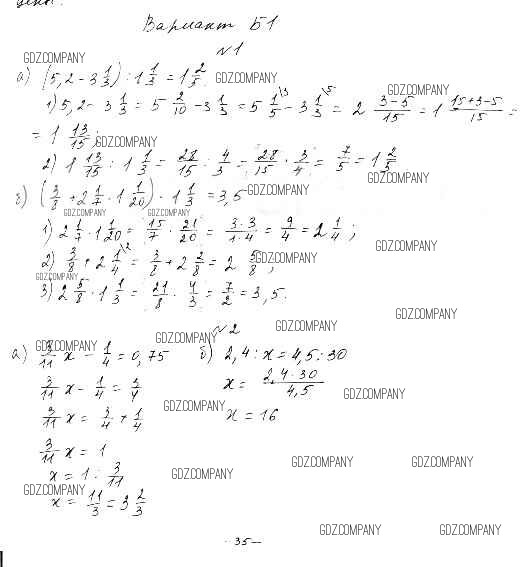 Вариант Б1
№1
GDZ.COMPANY
а) (5,2 - 3 1/3) : 1 1/3 = 1 2/5. GDZ.COMPANY
GDZ.COMPANY
1) 5,2 - 3 1/3 = 5 2/10 - 3 1/3 = 5 1/5 \3 - 3 1/3 \5 = 2 (3-5)/15 = 1 (15+3-5)/15 =
= 1 13/15; GDZ.COMPANY
2) 1 13/15 : 1 1/3 = 28/15 : 4/3 = 28/15 · 3/4 = 7/5 = 1 2/5
GDZ.COMPANY
б) (3/8 + 2 1/7 · 1 1/20) · 1 1/3 = 3,5 GDZ.COMPANY
GDZ.COMPANY GDZ.COMPANY
1) 2 1/7 · 1 1/20 = 15/7 · 21/20 = (3·3)/(1·4) = 9/4 = 2 1/4;
GDZ.COMPANY
2) 3/8 + 2 1/4 \2 = 3/8 + 2 2/8 = 2 5/8; GDZ.COMPANY
GDZ.COMPANY
3) 2 5/8 · 1 1/3 = 21/8 · 4/3 = 7/2 = 3,5.
GDZ.COMPANY
№2 GDZ.COMPANY
GDZ.COMPANY GDZ.COMPANY
а) 3/11 x - 1/4 = 0,75 б) 2,4 : x = 4,5 : 30
3/11 x - 1/4 = 3/4 x = (2,4·30)/4,5 GDZ.COMPANY
GDZ.COMPANY
3/11 x = 3/4 + 1/4 x = 16
3/11 x = 1
GDZ.COMPANY GDZ.COMPANY
x = 1 : 3/11 GDZ.COMPANY
GDZ.COMPANY
x = 11/3 = 3 2/3
GDZ.COMPANY GDZ.COMPANY
-35-